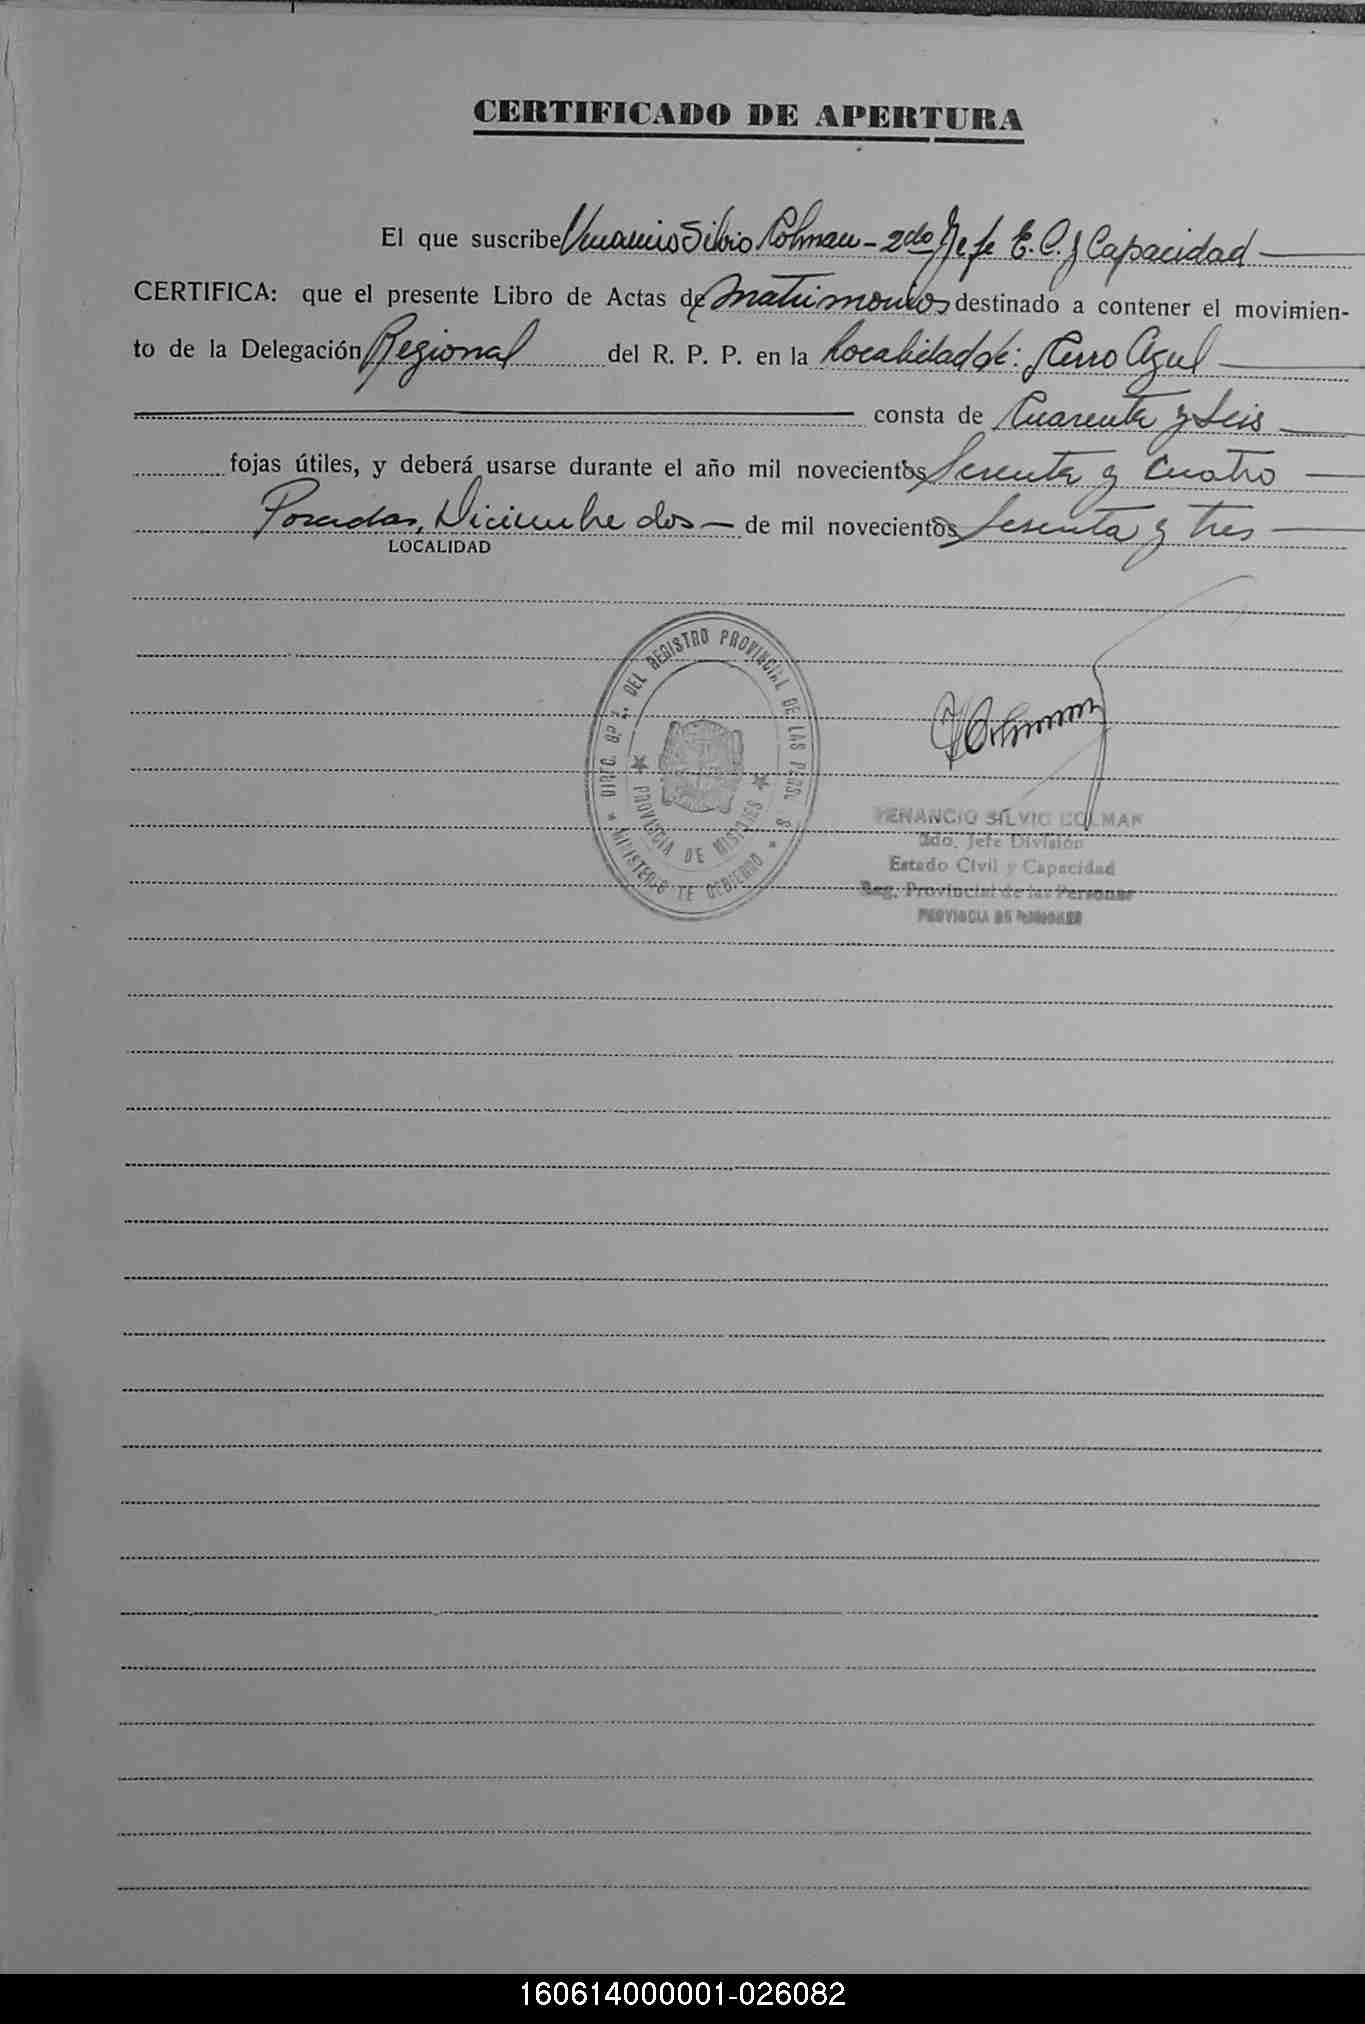 CERTIFICADO DE APERTURA
El que suscribe Venancio Silvio Colman - 2do Jefe E. C. y Capacidad
CERTIFICA: que el presente Libro de Actas de Matrimonios destinado a contener el movimien-
to de la Delegación Regional del R. P. P. en la Localidad de: Cerro Azul
consta de Cuarenta y Seis
fojas útiles, y deberá usarse durante el año mil novecientos Sesenta y Cuatro
Posadas, Diciembre dos - de mil novecientos Sesenta y tres
LOCALIDAD
DEL REGISTRO PROVINCIAL DE LAS PERSONAS
PROVINCIA DE MISIONES
MINISTERIO DE GOBIERNO
Colman
VENANCIO SILVIO COLMAN
2do. Jefe División
Estado Civil y Capacidad
Reg. Provincial de las Personas
PROVINCIA DE MISIONES
160614000001-026082